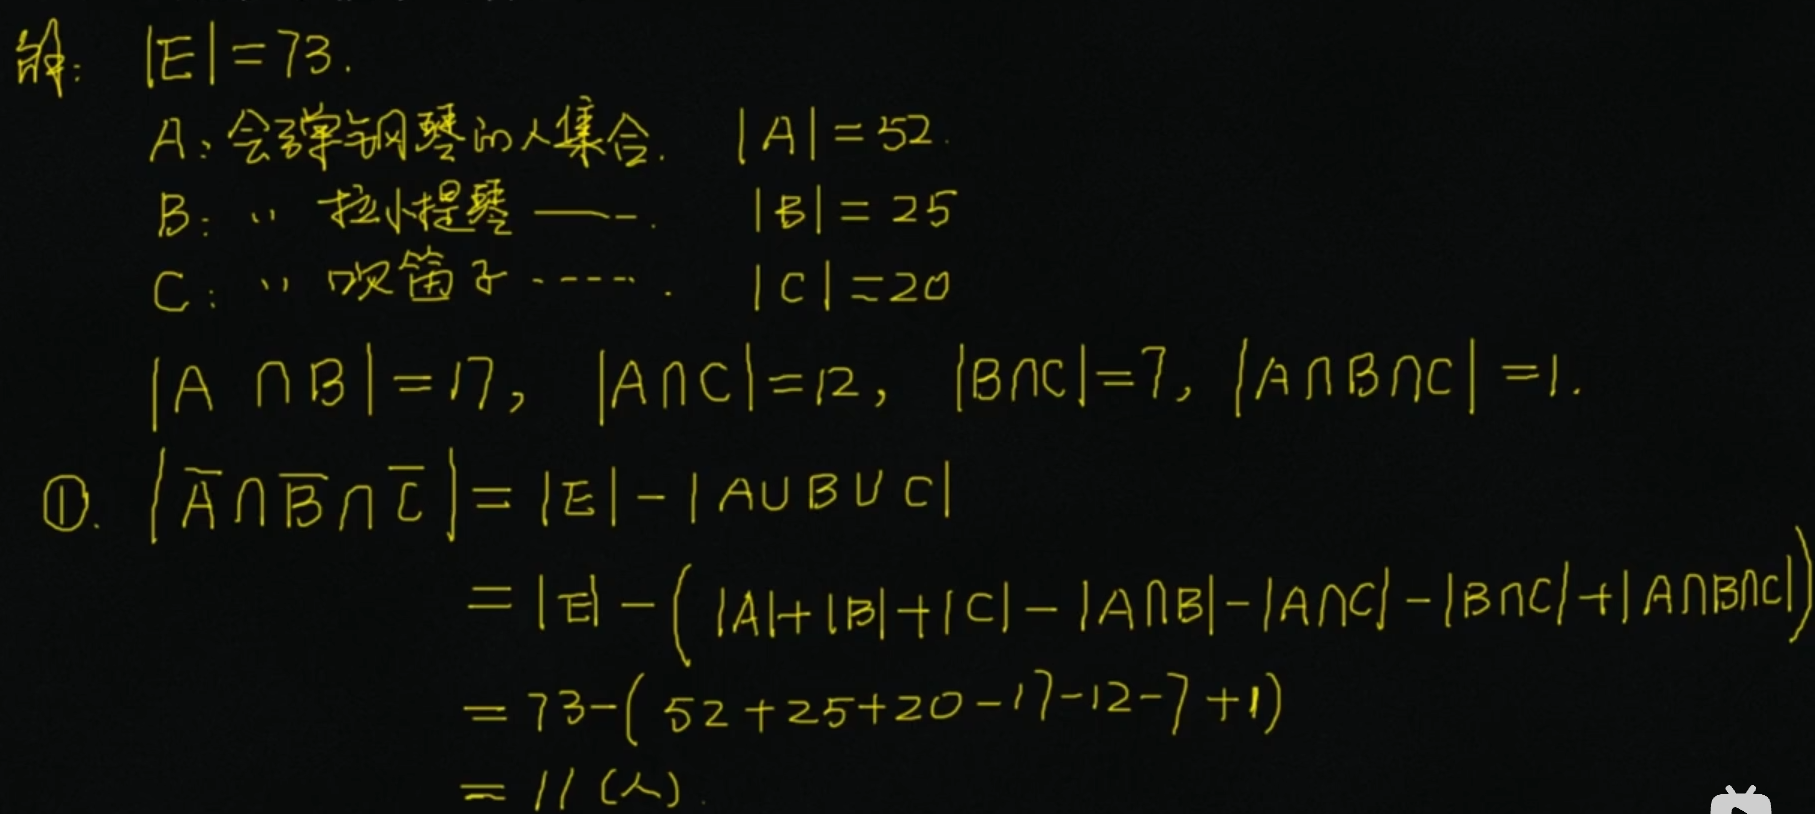 解: |E|=73.
A: 会弹钢琴的人集合. |A|=52.
B: 〃 拉小提琴 ——. |B|=25
C: 〃 吹笛子 ‑‑‑‑‑. |C|=20
|A∩B|=17, |A∩C|=12, |B∩C|=7, |A∩B∩C|=1.
①. |A̅∩B̅∩C̅|=|E|-|A∪B∪C|
=|E|-(|A|+|B|+|C|-|A∩B|-|A∩C|-|B∩C|+|A∩B∩C|)
=73-(52+25+20-17-12-7+1)
=11(人).